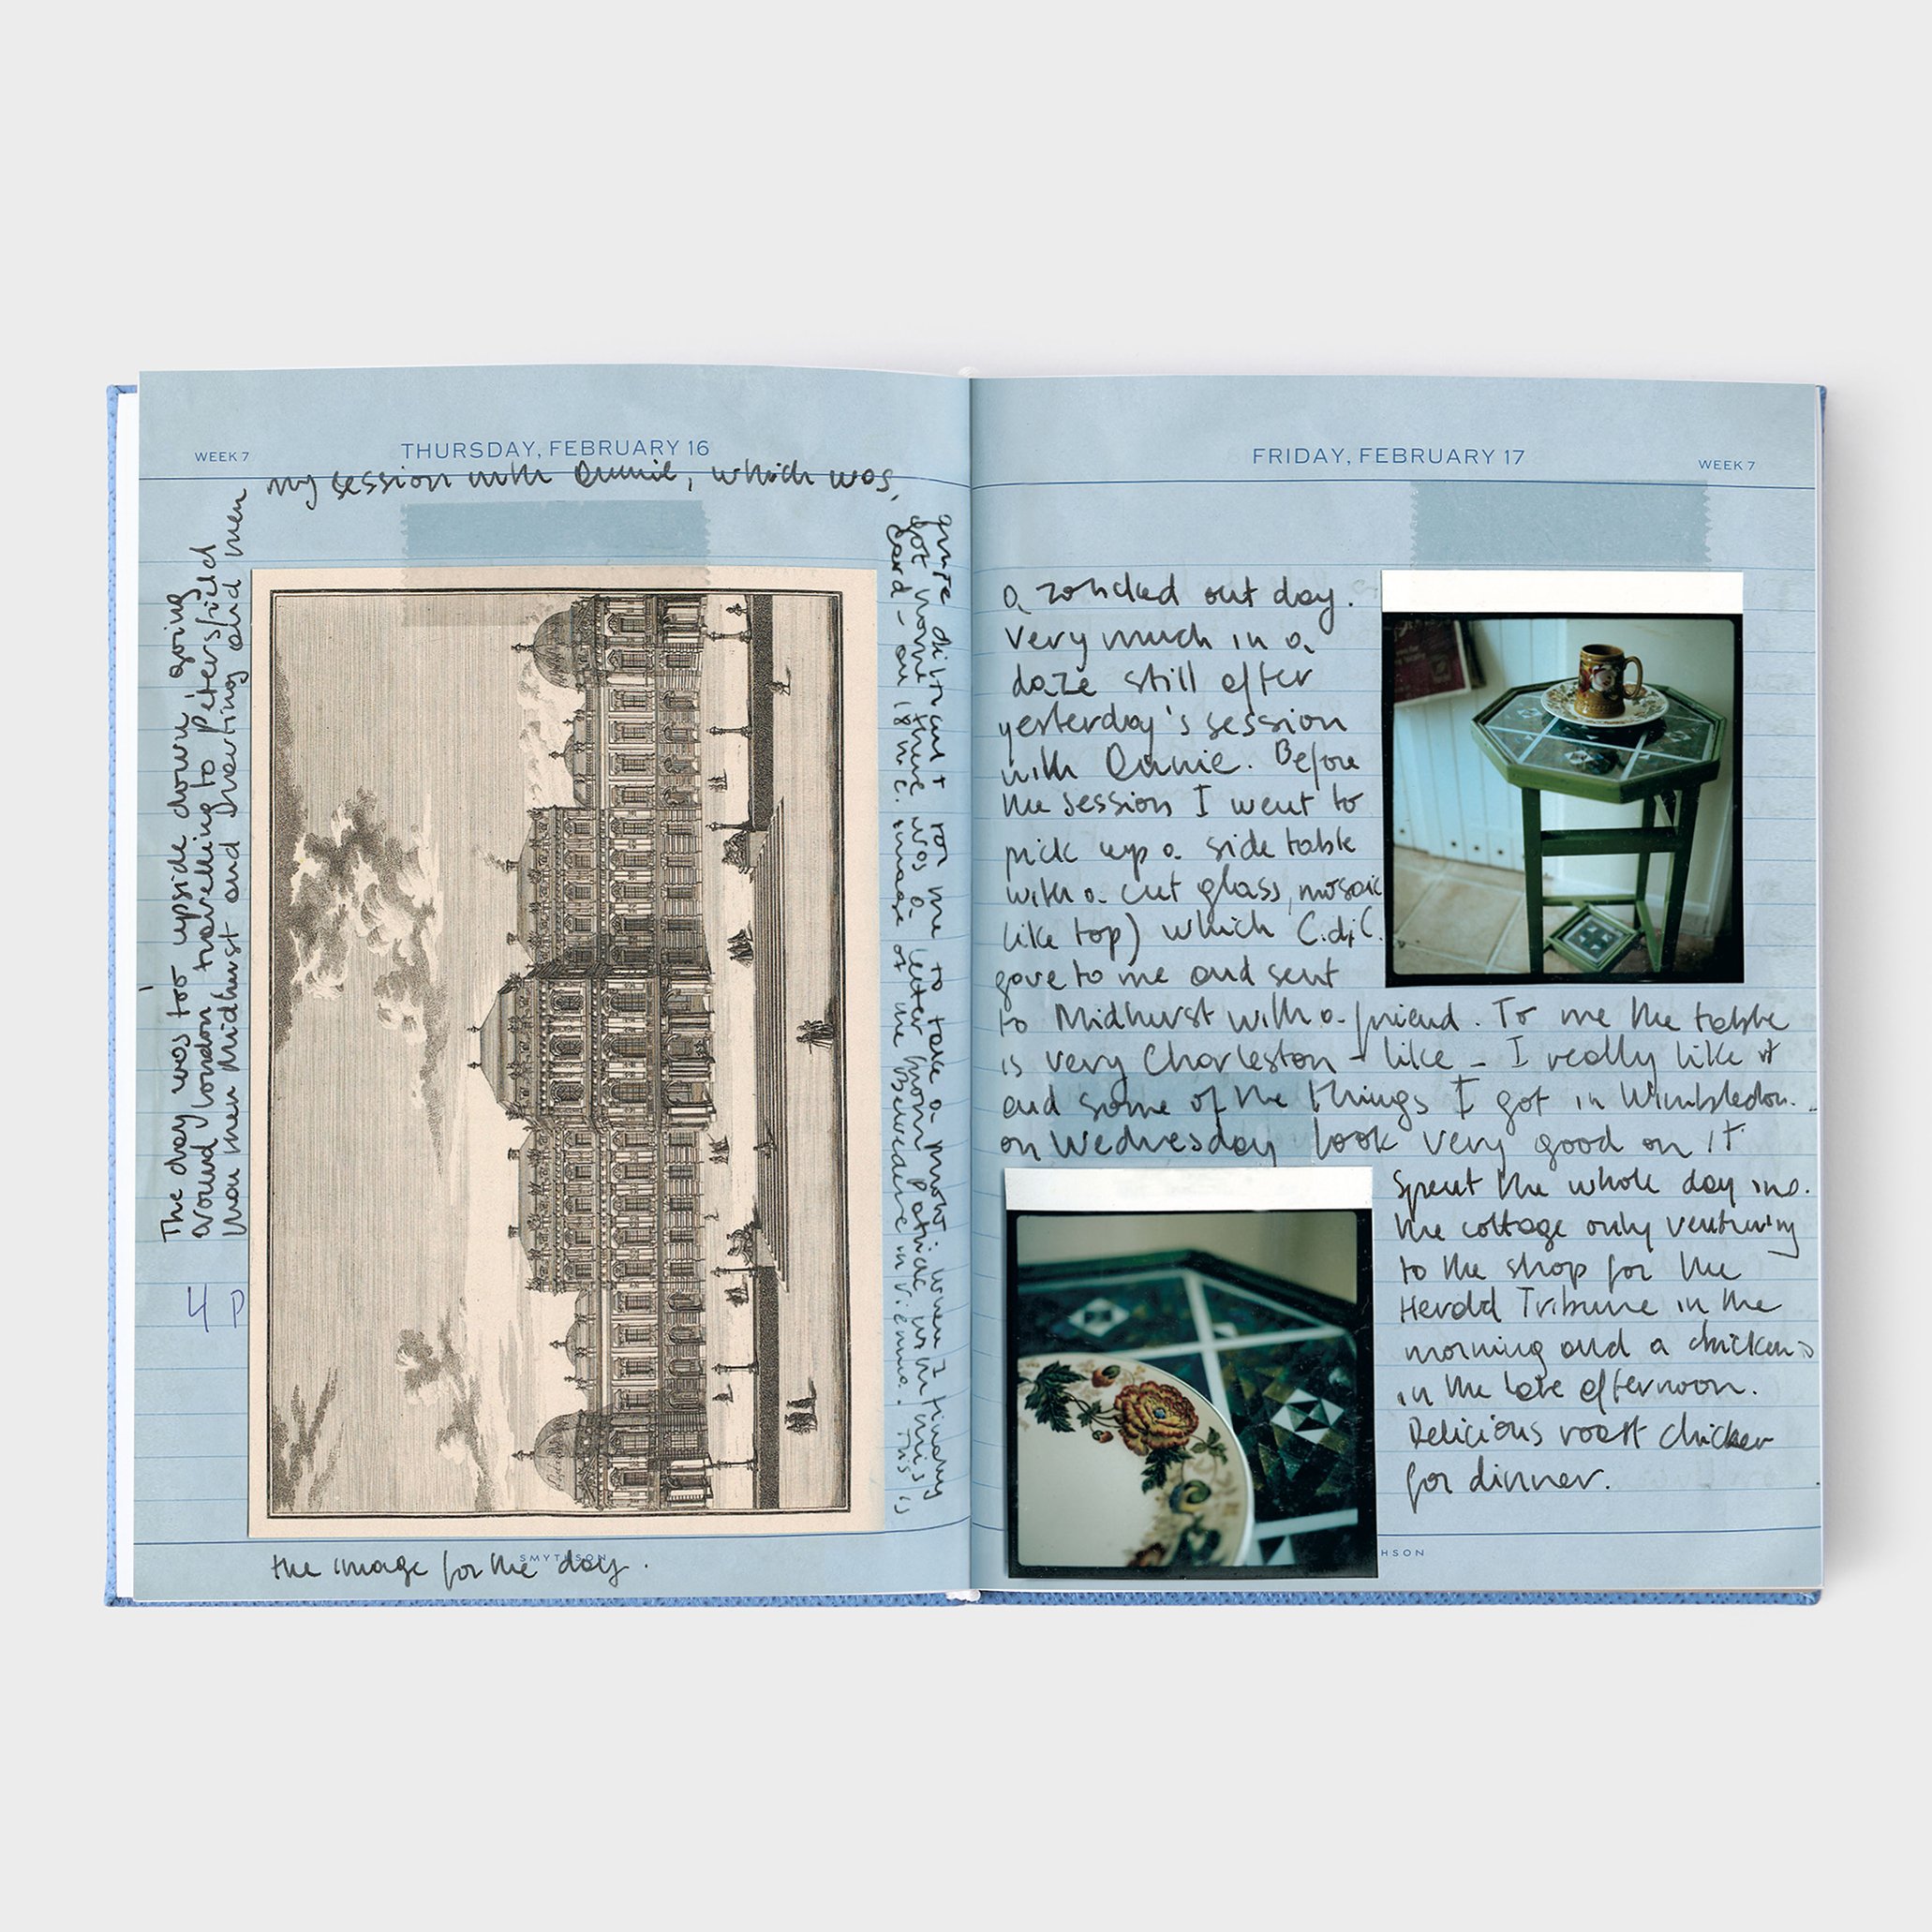 WEEK 7
THURSDAY, FEBRUARY 16
The day was too upside down going
around London travelling to Petersfield
than then Midhurst and Inverting and then
my session with Ennie, which was,
quite difficult for me to take a photo. when I finally
got home there was a letter from Patrick with this
card - an 18th C. image of the Belvedere in Vienna. This is
the image for the day.
4 p
SMYTHSON
FRIDAY, FEBRUARY 17
WEEK 7
a zonked out day.
Very much in a
daze still after
yesterday's session
with Ennie. Before
the session I went to
pick up a side table
with a cut glass, mosaic
like top) which C.d.C.
gave to me and sent
to Midhurst with a friend. To me the table
is very Charleston - like - I really like it
and some of the things I got in Wimbledon.
on Wednesday look very good on it
Spent the whole day in
the cottage only venturing
to the shop for the
Herald Tribune in the
morning and a chicken
in the late afternoon.
Delicious roast chicken
for dinner.
HSON